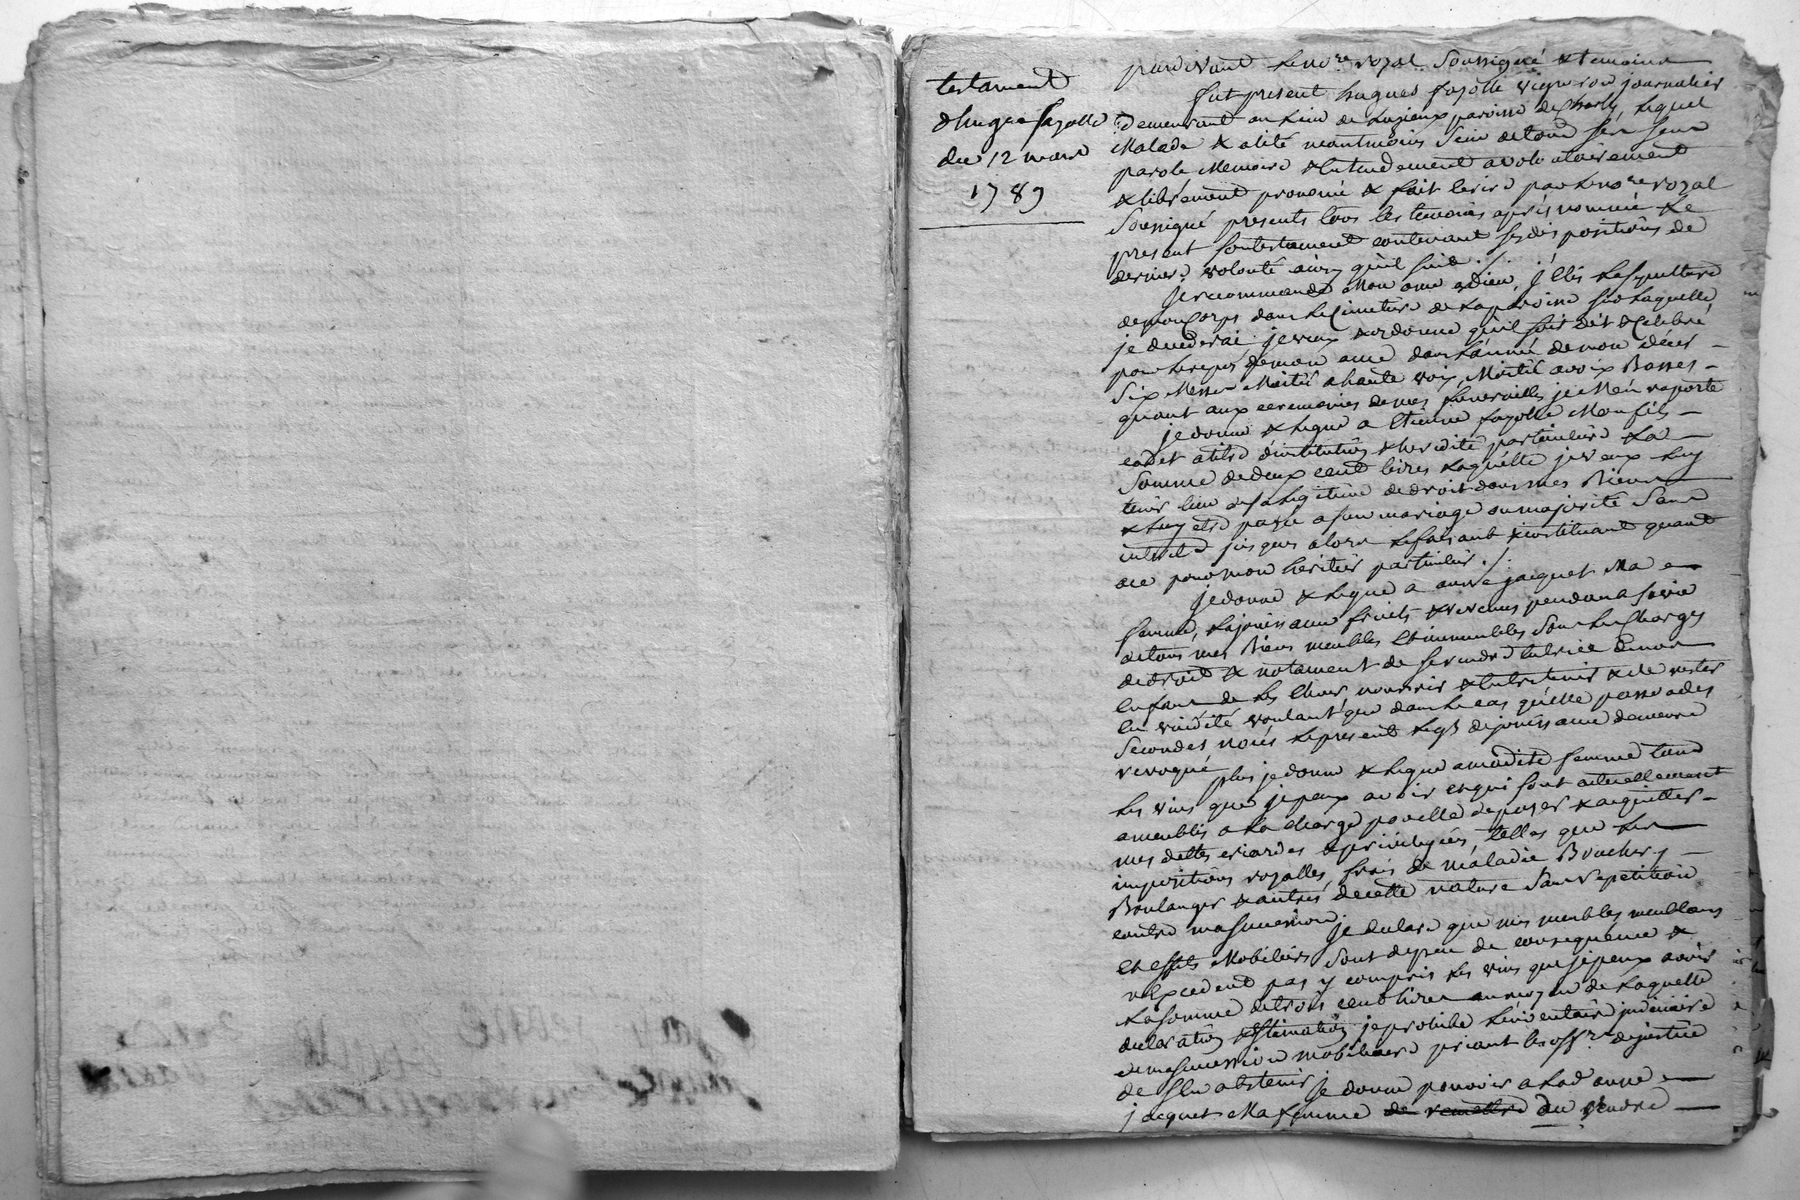 testament
d'hugue fayolle
du 12 mars
1789
pardevant le no.re royal soussigné & temoins
fut present hugues fayolle vigneron journalier
demeurant au lieu de paroisse de Charly lequel
malade & alité neantmoins sain de tous ses sens
parole memoire & entendement a volontairement
& librement prononcé & fait ecrire par le no.re royal
soussigné presents tous les temoins après nommés le
present son testament contenant ses dispositions de
derniere volonté ainsy qu'il suit ./.
Je recommande mon ame a dieu, j'élis la sepulture
de mon Corps dans le Cimetiere de la paroisse sur laquelle
je decederai je veux & ordonne qu'il soit dit & Celebré
pour le repos de mon ame dans l'année de mon décès –
six Messes Moitié a haute voix, Moitié a voix Basses –
quant aux ceremonies de mes funerailles je M'en raporte
je donne & legue a Etienne fayolle Mon fils –
cadet a titre d'institution & heredité particuliere la –
somme de deux cent livres laquelle je veux luy
tenir lieu de sa legitime de droit dans mes Biens
& luy etre payée a son mariage ou majorité sans
interets jusques alors le faisant & instituant quant
a ce pour mon héritier particulier ./.
je donne & legue a anne jacquet Ma
femme, la jouissance fruits & revenus pendant sa vie
de tous mes Biens meubles & immeubles sous les Charges
de droit & notament de se rendre tutrice de nos
enfans de les elever nourrir & entretenir & de rester
en viduité voulant que dans le cas qu'elle passe a des
secondes noces le present legs de jouissance demeure
revoqué
plus je donne & legue a madite femme tous
les vins que je peux avoir & qui sont actuellement
ameublis a la charge par elle de payer & acquitter –
mes dettes criardes & privilegiées, telles que les
impositions royalles, frais de maladie Boucher –
Boulanger & autres de cette nature sans repetition
contre ma succession je declare que mes meubles meublans
& effets Mobiliers sont de peu de consequence &
n'excedent pas y compris les vins que je peux avoir
la somme de trois cent livres au moyen de laquelle
declaration & estimation je prohibe l'inventaire judiciaire
de ma succession mobiliaire priant les off.rs de justice
de s'en abstenir je donne pouvoir a lad anne
jacquet Ma femme de remettre de vendre